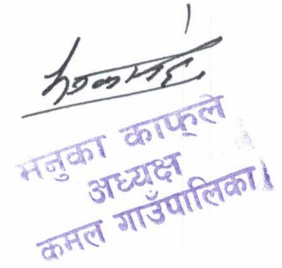 मेनुका काफ्ले
अध्यक्ष
कमल गाउँपालिका